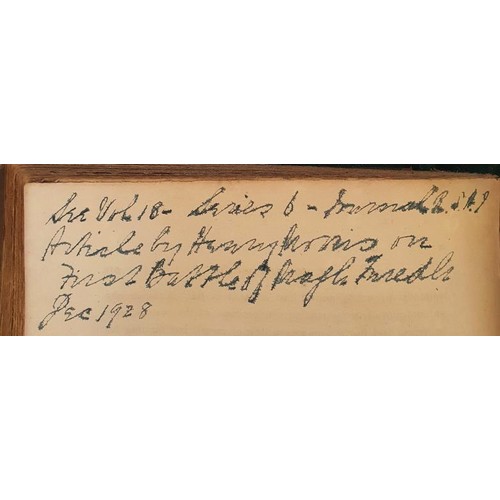 See Vol 18 - Series 6 - Journal R.S.A.I
Article by Henry Morris on
First Battle of Magh Turedh
Dec 1928